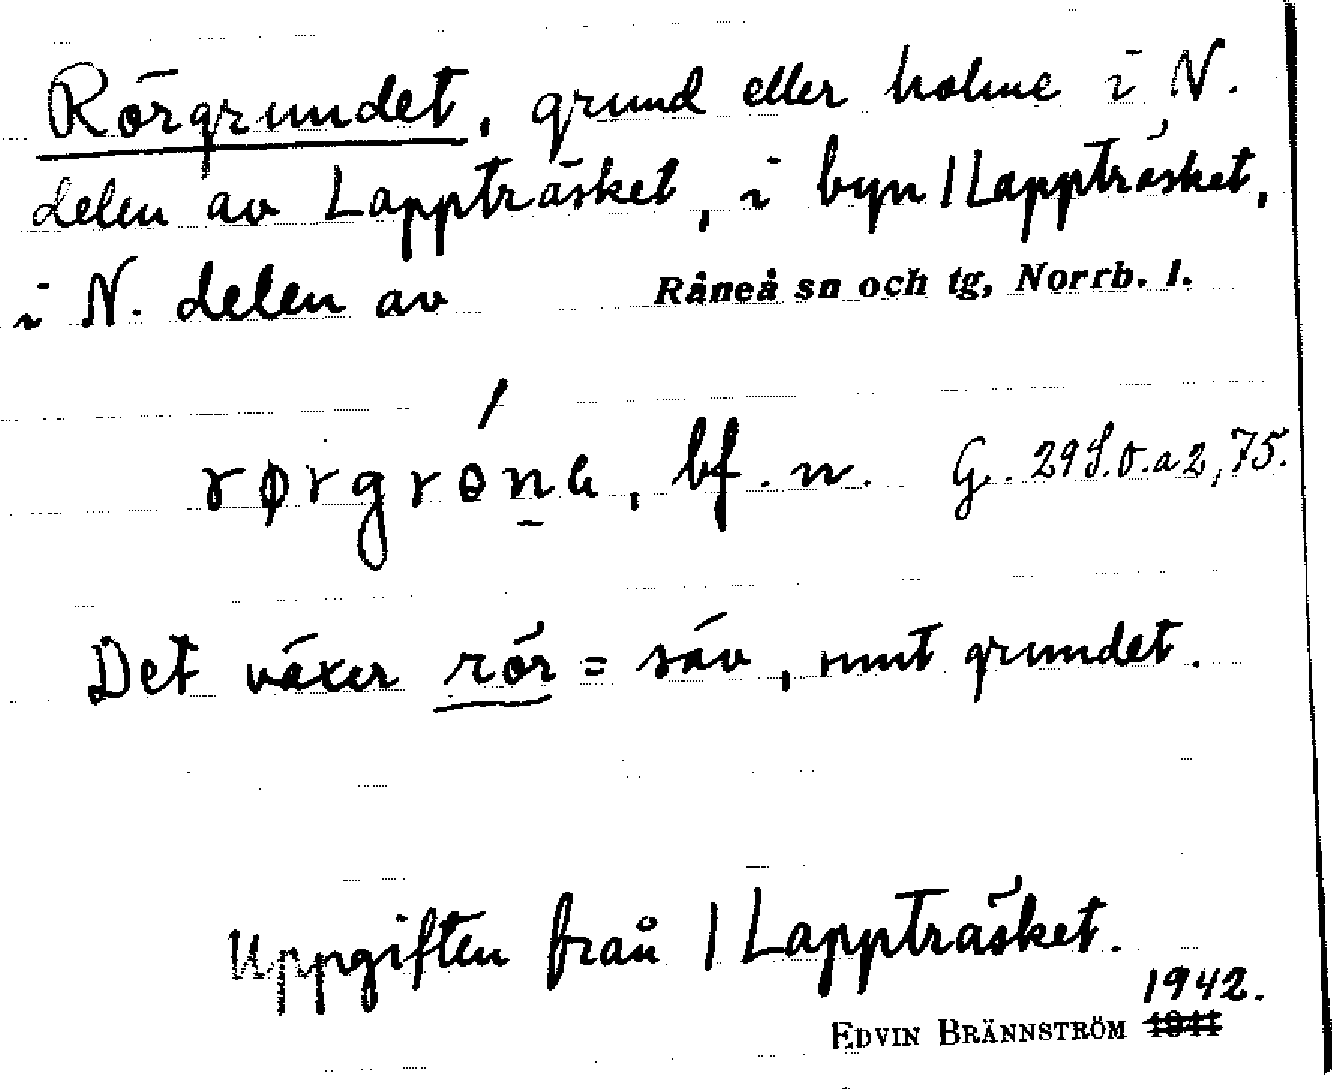 Rörgrundet, grund eller holme i N.
delen av Lappträsket, i byn / Lappträsket,
i N. delen av Råneå sn och tg, Norrb. l.
rørgrɵ́n̠a, bf. n. G. 29 S.O.a 2, 75.
Det växer rör = säv, runt grundet.
Uppgiften från / Lappträsket.
1942.
EDVIN BRÄNNSTRÖM 1941